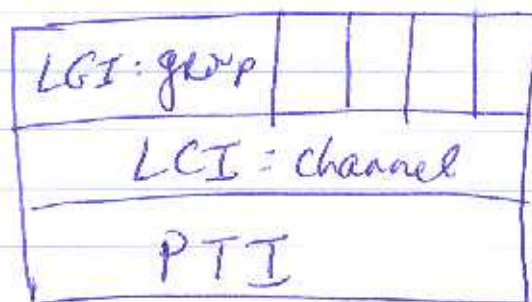 LGI: group
LCI = channel
PTI